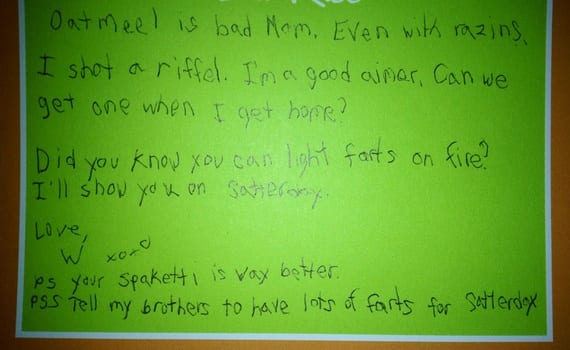 Oatmeel is bad Mom. Even with razins.
I shot a riffel. I'm a good aimer. Can we
get one when I get home?
Did you know you can light farts on fire?
I'll show you on Satterday.
Love,
W xoxo
ps your spaketti is way better.
PSS Tell my brothers to have lots of farts for Satterday